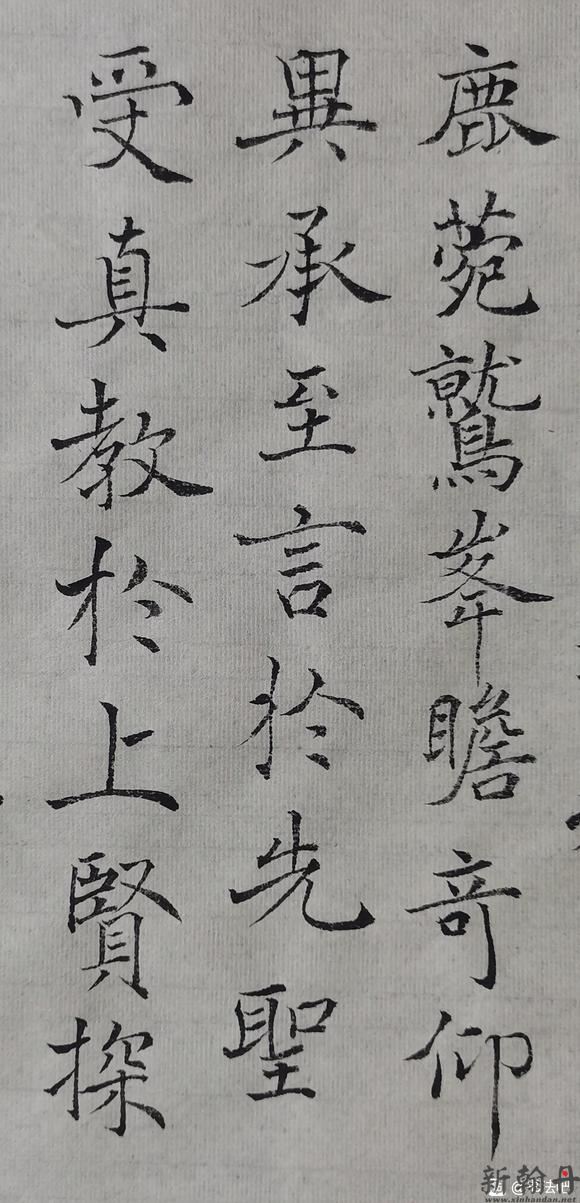 鹿菀鷲峯瞻奇仰
異承至言於先聖
受真教於上賢探
新翰丹
www.xinhandan.net